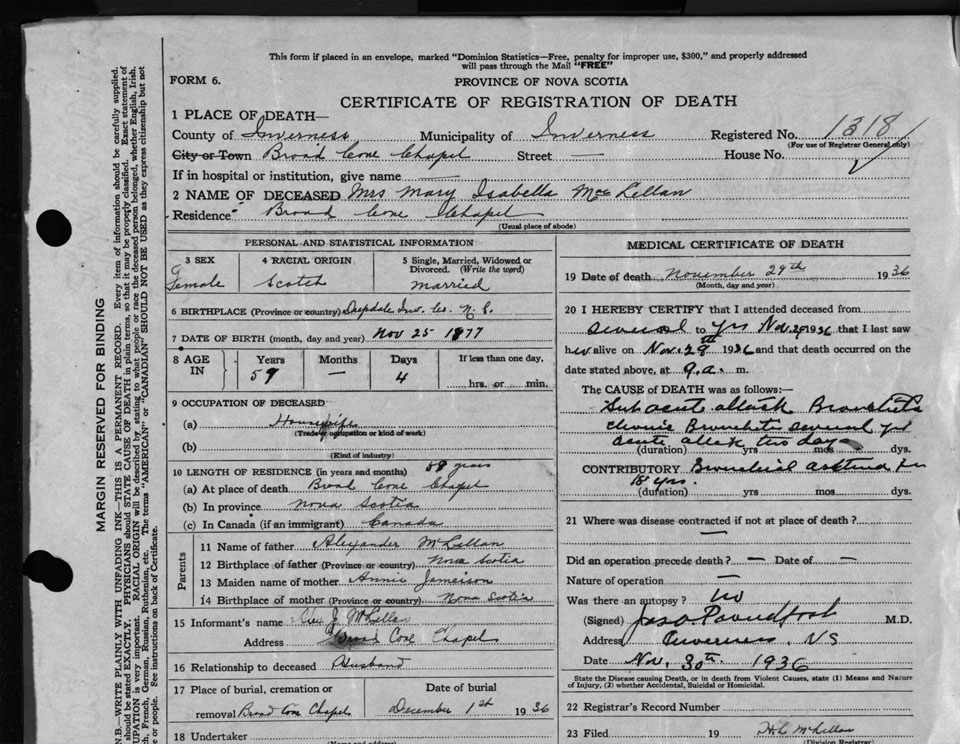 This form if placed in an envelope, marked "Dominion Statistics—Free, penalty for improper use, $300," and properly addressed
will pass through the Mail "FREE"
FORM 6.
PROVINCE OF NOVA SCOTIA
CERTIFICATE OF REGISTRATION OF DEATH
1 PLACE OF DEATH—
County of Inverness Municipality of Inverness Registered No. 1318
(For use of Registrar General only)
City or Town Broad Cove Chapel Street — House No.
If in hospital or institution, give name —
2 NAME OF DECEASED Mrs Mary Isabella McLellan
Residence Broad Cove Chapel
(Usual place of abode)
PERSONAL AND STATISTICAL INFORMATION
3 SEX 4 RACIAL ORIGIN 5 Single, Married, Widowed or
Divorced. (Write the word)
Female Scotch married
6 BIRTHPLACE (Province or country) Deepdale Inv. Co. N. S.
7 DATE OF BIRTH (month, day and year) Nov 25 1877
8 AGE IN Years Months Days If less than one day,
59 — 4 hrs. or min.
9 OCCUPATION OF DECEASED
(a) Housewife
(Trade, occupation or kind of work)
(b)
(Kind of industry)
10 LENGTH OF RESIDENCE (in years and months) 58 years
(a) At place of death Broad Cove Chapel
(b) In province Nova Scotia
(c) In Canada (if an immigrant) Canada
Parents
11 Name of father Alexander McLellan
12 Birthplace of father (Province or country) Nova Scotia
13 Maiden name of mother Annie Jameison
14 Birthplace of mother (Province or country) Nova Scotia
15 Informant's name J. McLellan
Address Broad Cove Chapel
16 Relationship to deceased Husband
17 Place of burial, cremation or Date of burial
removal Broad Cove Chapel December 1st 1936
18 Undertaker
(Name and address)
MEDICAL CERTIFICATE OF DEATH
19 Date of death November 29th 1936
(Month, day and year)
20 I HEREBY CERTIFY that I attended deceased from
several to yrs Nov. 29 1936 that I last saw
her alive on Nov. 29th 1936 and that death occurred on the
date stated above, at 9 a. m.
The CAUSE of DEATH was as follows:—
Sub acute attack Bronchitis
chronic Bronchitis several yrs
acute attack two days
(duration) yrs mos dys.
CONTRIBUTORY Bronchial asthma for
18 yrs.
(duration) yrs mos dys.
21 Where was disease contracted if not at place of death?
—
Did an operation precede death? — Date of —
Nature of operation —
Was there an autopsy? no
(Signed) M.D.
Address Inverness, NS
Date Nov. 30th, 1936
State the Disease causing Death, or in death from Violent Causes, state (1) Means and Nature
of Injury, (2) whether Accidental, Suicidal or Homicidal.
22 Registrar's Record Number
23 Filed 19 McLellan
(Division Registrar)
MARGIN RESERVED FOR BINDING
N.B.—WRITE PLAINLY WITH UNFADING INK—THIS IS A PERMANENT RECORD. Every item of information should be carefully supplied.
should be stated EXACTLY. PHYSICIANS should STATE CAUSE OF DEATH in plain terms, so that it may be properly classified. Exact statement of
UPATION is very important. RACIAL ORIGIN will be described by stating to what people or race the deceased person belonged, whether English, Irish,
ch, French, German, Russian, Ruthenian, etc. The terms "AMERICAN" or "CANADIAN" SHOULD NOT BE USED as they express citizenship but not
e or people. See instructions on back of Certificate.